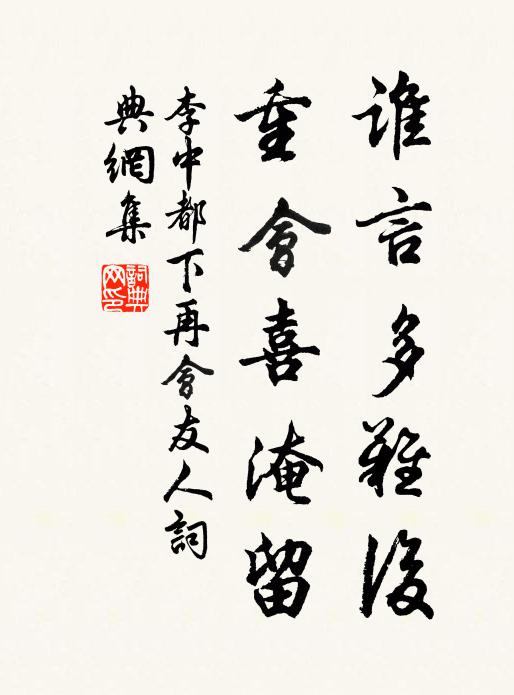 誰言多難後
重會喜淹留
李中都下再會友人詞
典網集
詞典網印